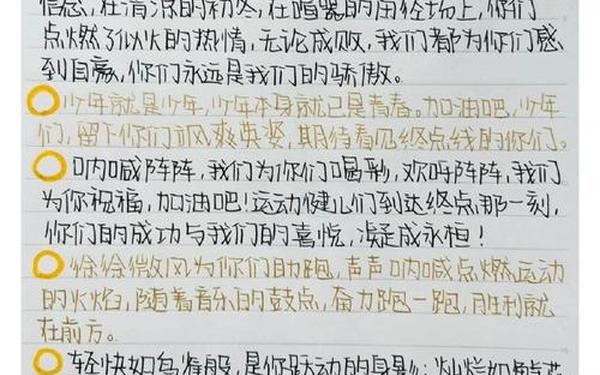 信息，在清凉的初冬，在喧嚣的田径场上，你们
点燃了似火的热情，无论成败，我们都为你们感
到自豪，你们永远是我们的骄傲。
少年就是少年，少年本身就已是青春。加油吧，少年
们，留下你们飒爽英姿，期待看见终点线的你们。
呐喊阵阵，我们为你们喝彩，欢呼阵阵，我们
为你祝福，加油吧！运动健儿们到达终点那一刻，
你们的成功与我们的喜悦，凝成永恒！
徐徐微风为你们助跑，声声呐喊点燃运动
的火焰，随着音乐的鼓点，奋力跑一跑，胜利就
在前方。
轻快如鸟雀般，是你跃动的身影；灿烂如